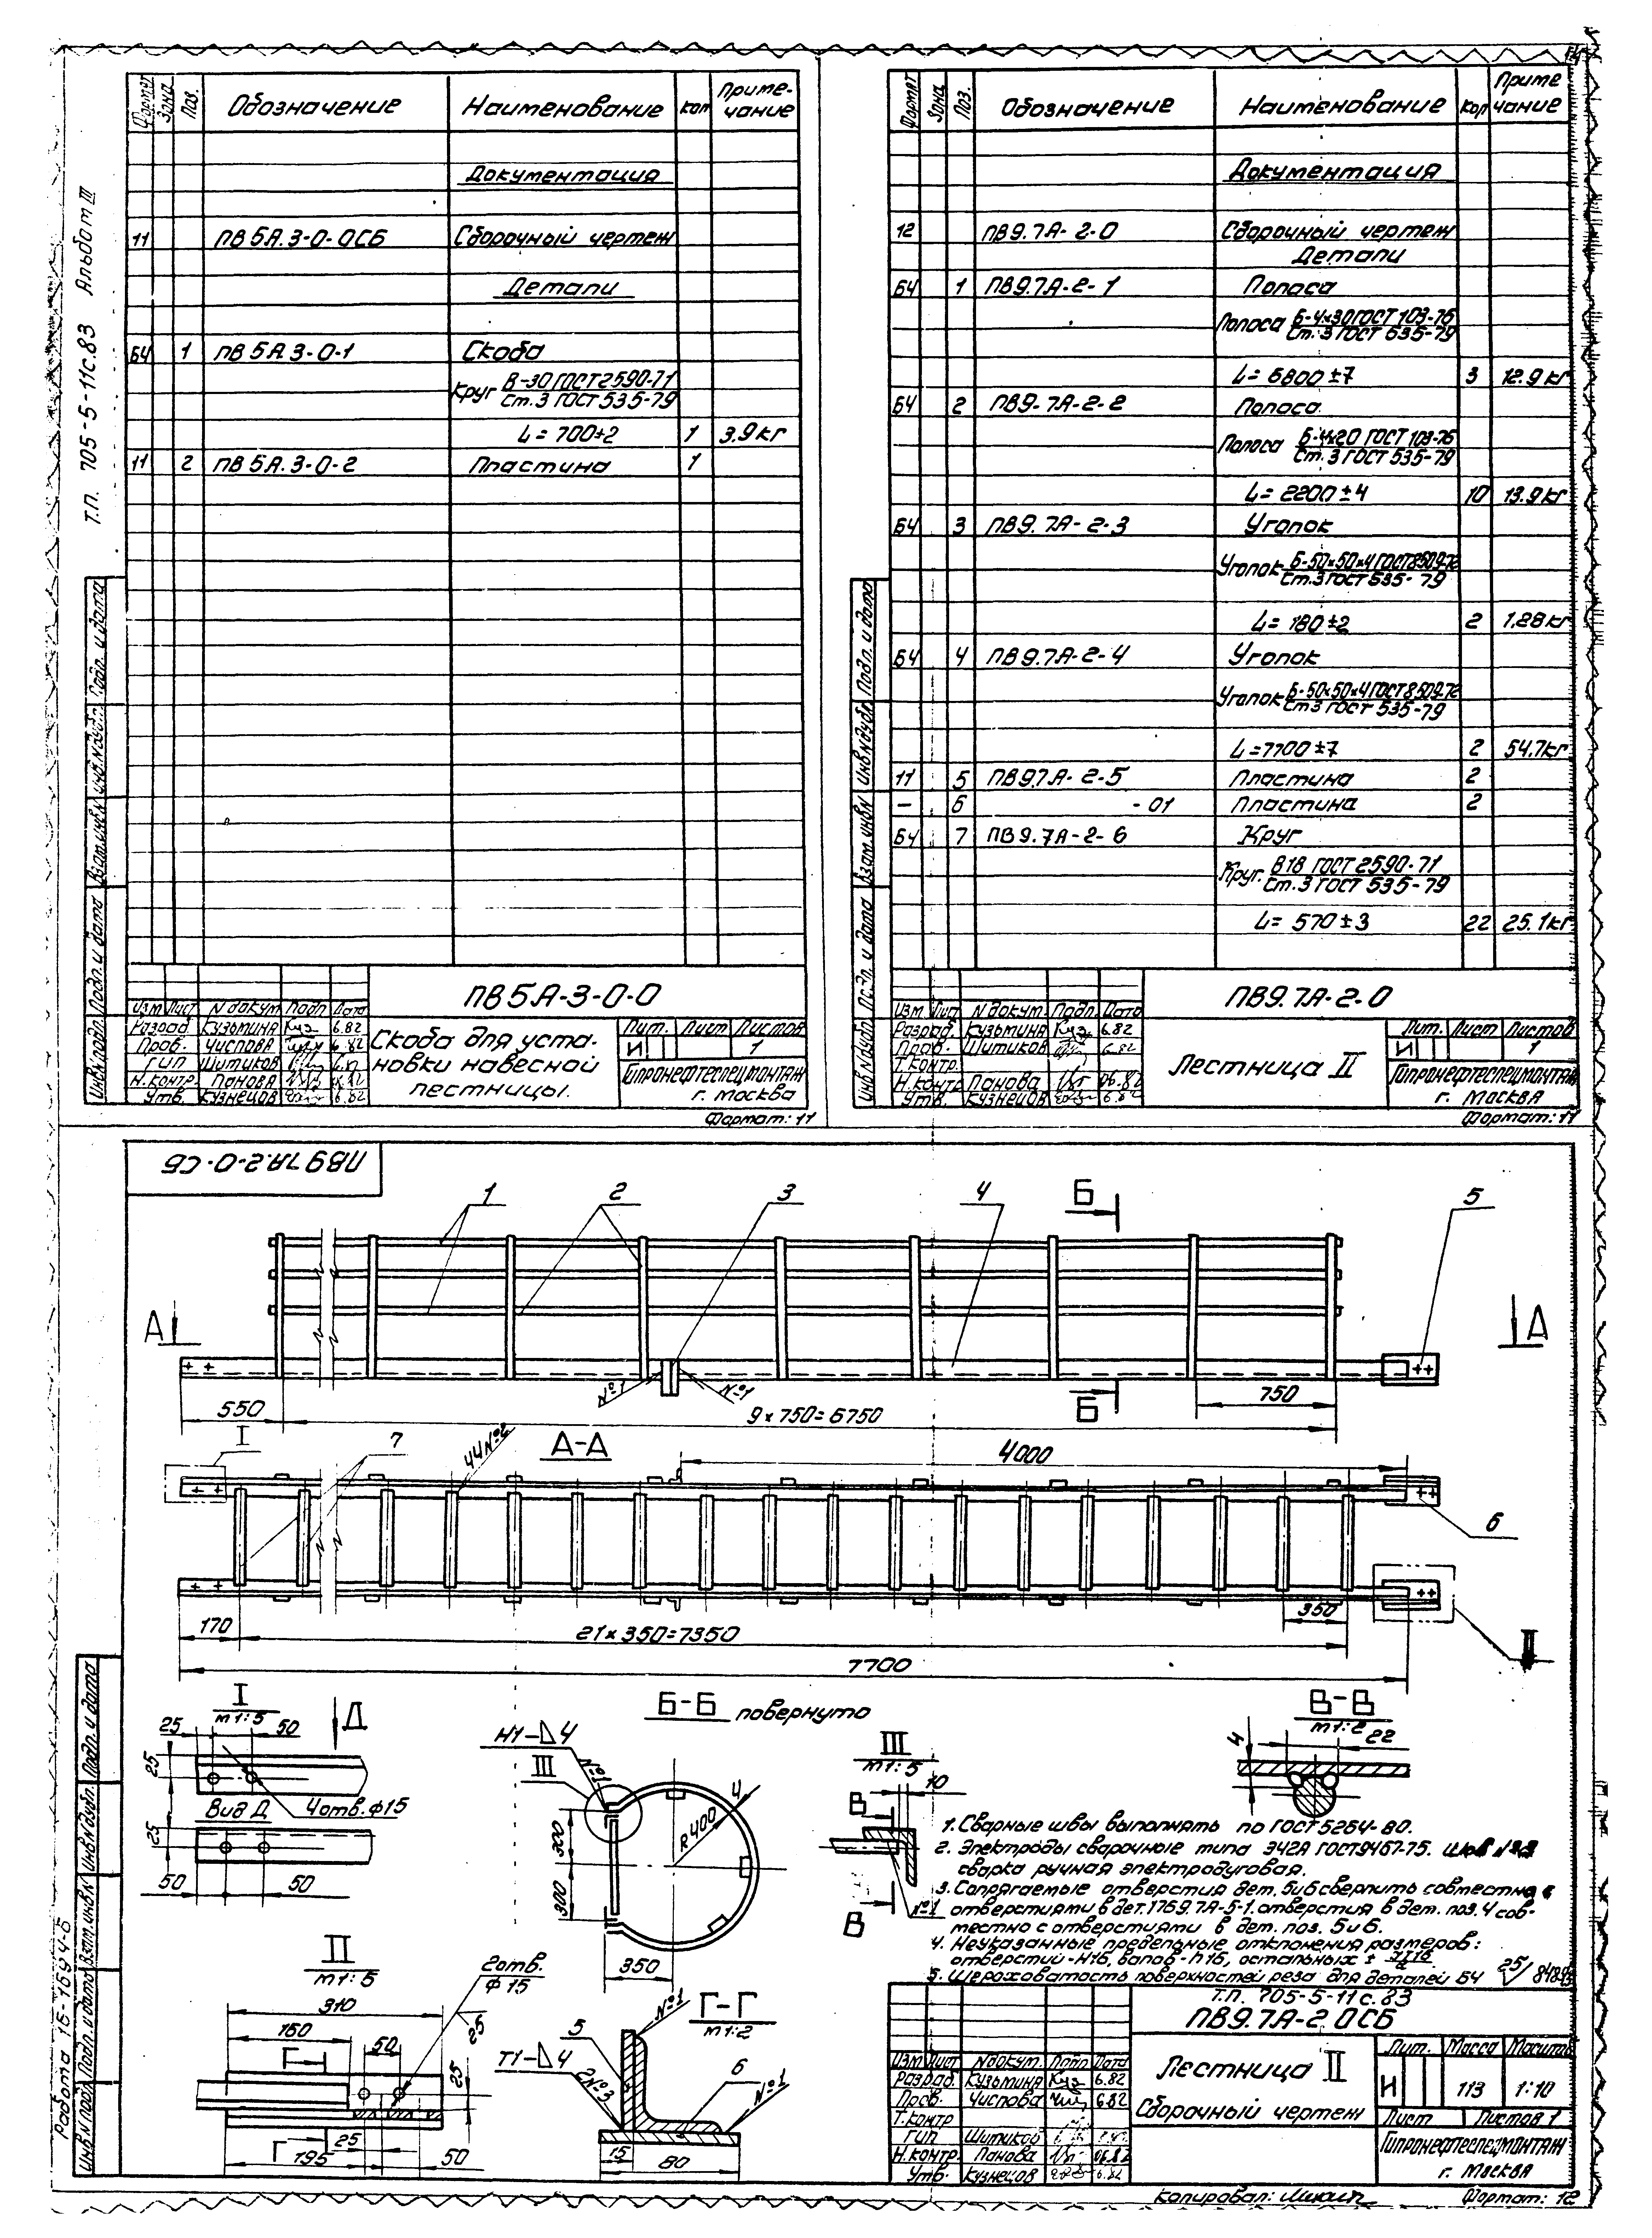 Т.П. 705-5-11с.83 Альбом III
Формат Зона Поз. Обозначение Наименование Кол Приме-чание
Документация
11 ПВ 5А.3-0-0СБ Сборочный чертеж
Детали
Б4 1 ПВ 5А.3-0-1 Скоба
Круг В-30 ГОСТ 2590-71
Ст.3 ГОСТ 535-79
L= 700±2 1 3.9кг
11 2 ПВ 5А.3-0-2 Пластина 1
Инв.N подл. Подп. и дата Взам.инв.N Инв.N дубл. Подп. и дата
Изм Лист N докум Подп Дата
Разраб. Кузьмина 6.82
Пров. Чиспова 6.82
ГИП Шитиков
Н.контр. Панова 06.82
Утв. Кузнецов 6.82
ПВ5А-3-0-0
Скоба для уста-
новки навесной
лестницы.
Лит. Лист Листов
И 1
Гипронефтеспецмонтаж
г. Москва
Формат: 11
Формат Зона Поз. Обозначение Наименование Кол Приме чание
Документация
12 ПВ9.7А-2-0 Сборочный чертеж
Детали
Б4 1 ПВ9.7А-2-1 Полоса
Полоса Б-4х30 ГОСТ 103-76
Ст.3 ГОСТ 535-79
L= 6800±7 3 12.9кг
Б4 2 ПВ9.7А-2-2 Полоса
Полоса Б-4х20 ГОСТ 103-76
Ст.3 ГОСТ 535-79
L= 2200±4 10 13.9кг
Б4 3 ПВ9.7А-2-3 Уголок
Уголок Б-50х50х4 ГОСТ 8509-72
Ст.3 ГОСТ 535-79
L= 180±2 2 1.28кг
Б4 4 ПВ9.7А-2-4 Уголок
Уголок Б-50х50х4 ГОСТ 8509-72
Ст.3 ГОСТ 535-79
L=7700±7 2 54.7кг
11 5 ПВ9.7А-2-5 Пластина 2
— 6 -01 Пластина 2
Б4 7 ПВ9.7А-2-6 Круг
Круг В18 ГОСТ 2590-71
Ст.3 ГОСТ 535-79
L= 570±3 22 25.1кг
Инв.N дубл. Подп. и дата Взам.инв.N Инв.N дубл. Подп. и дата
Изм Лист N докум. Подп. Дата
Разраб. Кузьмина 6.82
Пров. Шитиков 6.82
Т.контр.
Н.контр. Панова 06.82
Утв. Кузнецов 6.82
ПВ9.7А-2.0
Лестница II
Лит. Лист Листов
И 1
Гипронефтеспецмонтаж
г. Москва
Формат: 11
ПВ9.7А.2-0-СБ
1 2 3 4 Б 5
А А
N°1 N°1
Б
550 9×750=6750 750
I 7 44 N°2 А-А 4000
6
170 21×350=7350 350
II
7700
I
М1:5
Д
25 50
25
4 отв. ф15
Вид Д
25
50 50
Б-Б повернуто
Н1-⊿4
III
N°1
4
R400
300
300
350
III
М1:5
10
В
N°1
В
В-В
М1:2
4 22
1. Сварные швы выполнять по ГОСТ 5264-80.
2. Электроды сварочные типа Э42А ГОСТ 9467-75.
сварка ручная электродуговая.
3. Сопрягаемые отверстия дет. 5 и 6 сверлить совместно с
отверстиями в дет. отверстия в дет. поз. 4 сов-
местно с отверстиями в дет. поз. 5 и 6.
4. Неуказанные предельные отклонения размеров:
отверстий-Н16, валов-h16, остальных ±
5. Шероховатость поверхностей реза для деталей Б4 25
II
М1:5
310
160 50
2 отв.
ф15
25
Г
25
Г 25 50
195
Г-Г
М1:2
N°1
5
Т1-⊿4
2 N°3
6
N°1
15
80
Работа 16-1694-Б
Инв.N подл. Подп. и дата Взам.инв.N Инв.N дубл. Подп. и дата
Т.П. 705-5-11с.83
ПВ9.7А-2.0СБ
Изм Лист N докум. Подп. Дата
Разраб. Кузьмина 6.82
Пров. Чиспова 6.82
Т.контр
ГИП Шитиков
Н.контр. Панова 06.82
Утв. Кузнецов 6.82
Лестница II
Сборочный чертеж
Лит. Масса Масштаб
И 113 1:10
Лист Листов 1
Гипронефтеспецмонтаж
г. Москва
Копировал: Формат: 12